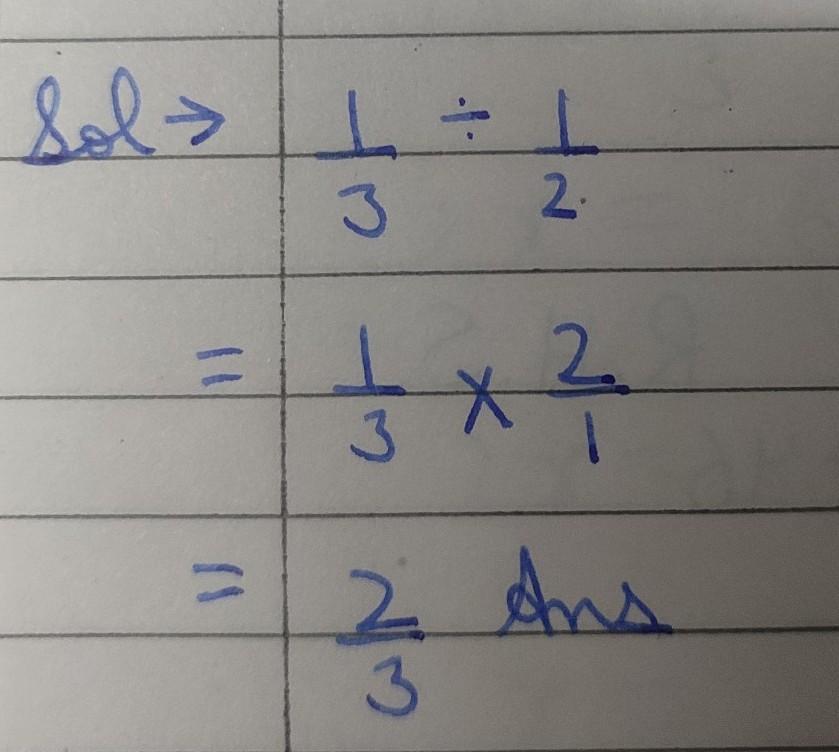 Sol → 1/3 ÷ 1/2
= 1/3 × 2/1
= 2/3 Ans